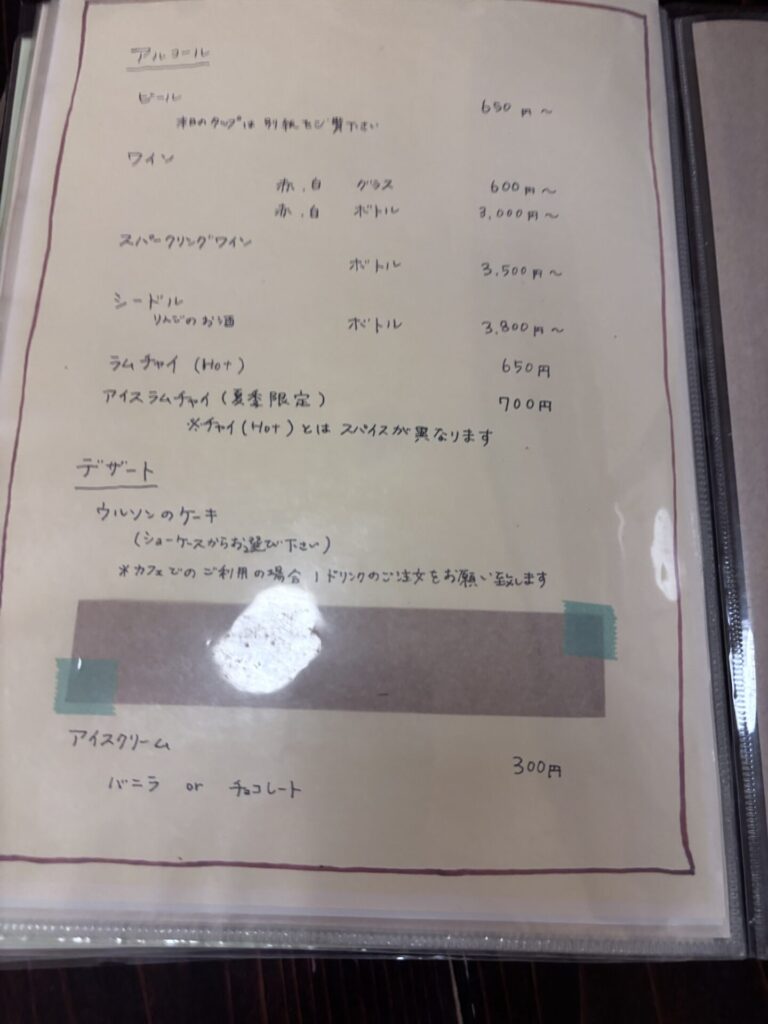 アルコール
ビール 650円〜
本日のタップは別紙をご覧下さい
ワイン
赤,白 グラス 600円〜
赤,白 ボトル 3,000円〜
スパークリングワイン
ボトル 3,500円〜
シードル
りんごのお酒 ボトル 3,800円〜
ラムチャイ (Hot) 650円
アイスラムチャイ (夏季限定) 700円
※チャイ(Hot)とはスパイスが異なります
デザート
ウルソンのケーキ
(ショーケースからお選び下さい)
※カフェでのご利用の場合1ドリンクのご注文をお願い致します
アイスクリーム 300円
バニラ or チョコレート